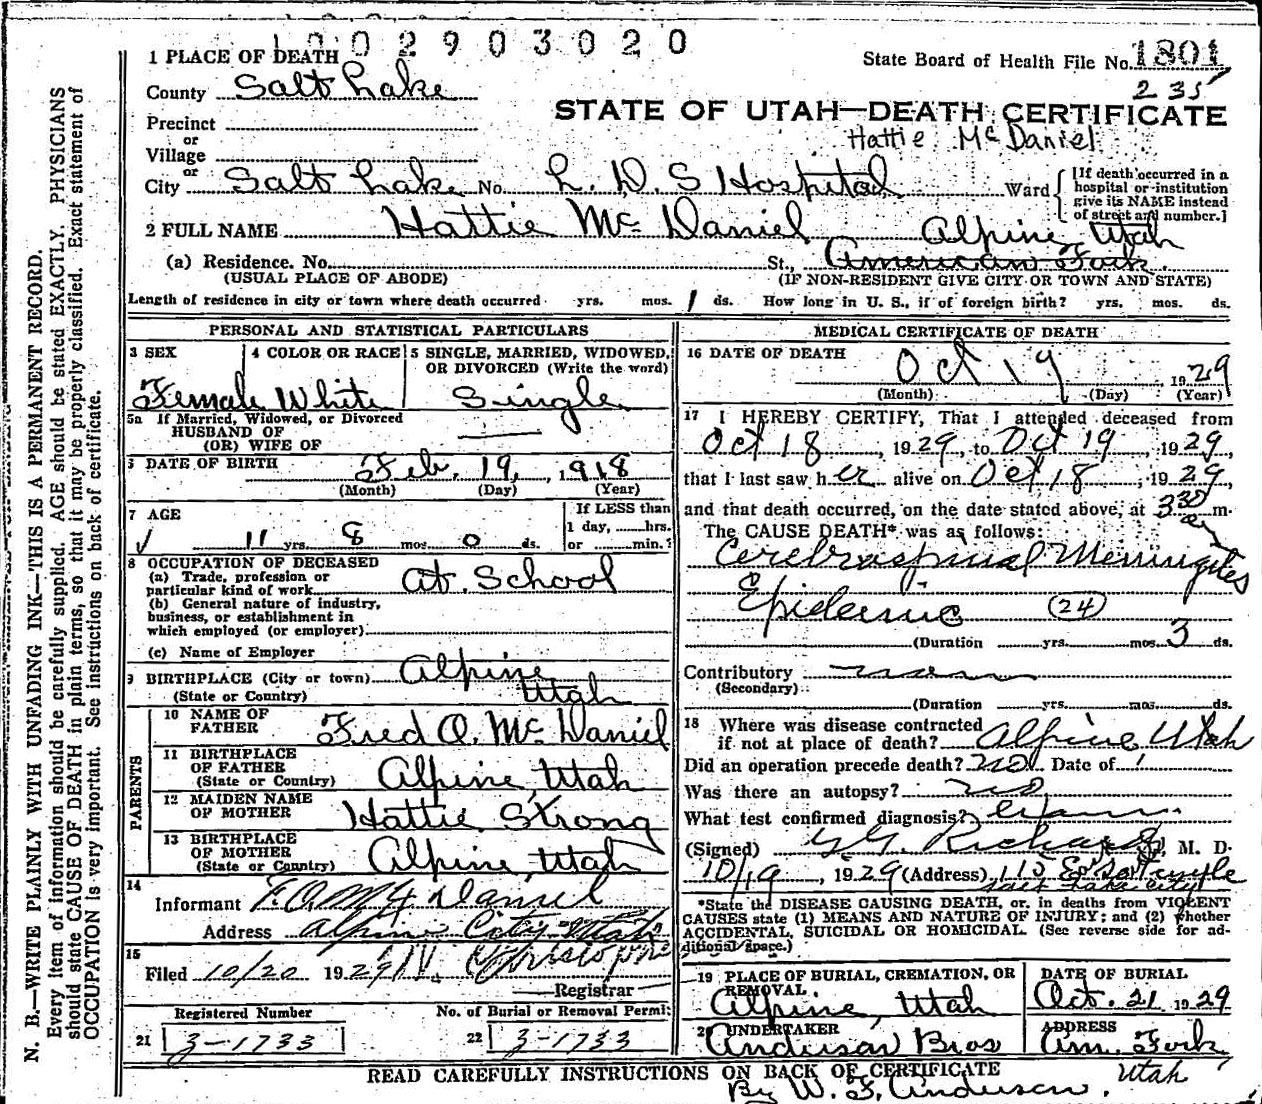 1002903020
1 PLACE OF DEATH
State Board of Health File No. 1801
235
County Salt Lake
STATE OF UTAH—DEATH CERTIFICATE
Hattie McDaniel
Precinct
or
Village
or
City Salt Lake No. L. D. S Hospital Ward
[If death occurred in a hospital or institution give its NAME instead of street and number.]
2 FULL NAME Hattie McDaniel
Alpine, Utah
(a) Residence. No. St., American Fork
(USUAL PLACE OF ABODE) (IF NON-RESIDENT GIVE CITY OR TOWN AND STATE)
Length of residence in city or town where death occurred yrs. mos. 1 ds. How long in U. S., if of foreign birth? yrs. mos. ds.
PERSONAL AND STATISTICAL PARTICULARS
3 SEX 4 COLOR OR RACE 5 SINGLE, MARRIED, WIDOWED, OR DIVORCED (Write the word)
Female White Single
5a If Married, Widowed, or Divorced
HUSBAND OF
(OR) WIFE OF
6 DATE OF BIRTH Feb. 19, 1918
(Month) (Day) (Year)
7 AGE
If LESS than
1 day, hrs.
or min.?
11 yrs. 8 mos. 0 ds.
8 OCCUPATION OF DECEASED
(a) Trade, profession or
particular kind of work At School
(b) General nature of industry,
business, or establishment in
which employed (or employer)
(c) Name of Employer
9 BIRTHPLACE (City or town) Alpine
(State or Country) Utah
PARENTS
10 NAME OF FATHER Fred O. McDaniel
11 BIRTHPLACE OF FATHER (State or Country) Alpine, Utah
12 MAIDEN NAME OF MOTHER Hattie Strong
13 BIRTHPLACE OF MOTHER (State or Country) Alpine, Utah
14
Informant F. O. Mc Daniel
Address Alpine City Utah
15
Filed 10/20 1929
Registrar
Registered Number No. of Burial or Removal Permit
21 3-1733 22 3-1733
MEDICAL CERTIFICATE OF DEATH
16 DATE OF DEATH
Oct 19 1929
(Month) (Day) (Year)
17 I HEREBY CERTIFY, That I attended deceased from
Oct 18, 1929, to Oct 19, 1929,
that I last saw her alive on Oct 18, 1929,
and that death occurred, on the date stated above, at 330 am.
The CAUSE DEATH* was as follows:
Cerebrospinal Meningites
Epidemic (24)
(Duration yrs. mos. 3 ds.
Contributory
(Secondary)
(Duration yrs. mos. ds.
18 Where was disease contracted
if not at place of death? Alpine Utah
Did an operation precede death? no Date of
Was there an autopsy? no
What test confirmed diagnosis?
(Signed) G. G. Richards, M. D.
10/19, 1929 (Address) 115 E. So. Temple
Salt Lake City
*State the DISEASE CAUSING DEATH, or, in deaths from VIOLENT
CAUSES state (1) MEANS AND NATURE OF INJURY; and (2) whether
ACCIDENTAL, SUICIDAL OR HOMICIDAL. (See reverse side for ad-
ditional space.)
19 PLACE OF BURIAL, CREMATION, OR REMOVAL. DATE OF BURIAL
Alpine, Utah Oct. 21 1929
20 UNDERTAKER ADDRESS
Anderson Bros Am. Fork
Utah
READ CAREFULLY INSTRUCTIONS ON BACK OF CERTIFICATE
By W. F. Anderson.
N. B.—WRITE PLAINLY WITH UNFADING INK—THIS IS A PERMANENT RECORD.
Every item of information should be carefully supplied. AGE should be stated EXACTLY. PHYSICIANS
should state CAUSE OF DEATH in plain terms, so that it may be properly classified. Exact statement of
OCCUPATION is very important. See instructions on back of certificate.